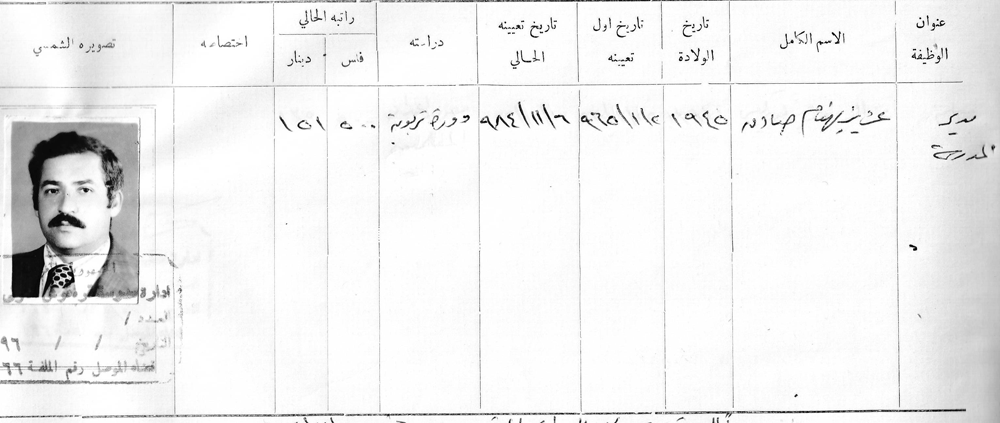 عنوان الوظيفة
الاسم الكامل
تاريخ الولادة
تاريخ اول تعيينه
تاريخ تعيينه الحالي
دراسته
راتبه الحالي
فلس دينار
اختصاصه
تصويره الشمسي
مدير المدرسة
عزيز بهنام
١٩٤٥
٩٦٥/١/٢
٩٨٤/١١/٦
دورة تربوية
٥٠٠ ١٥١
ادارة
العدد /
التاريخ / / ٩٦
قضاء الموصل رقم الملفة ٦٦